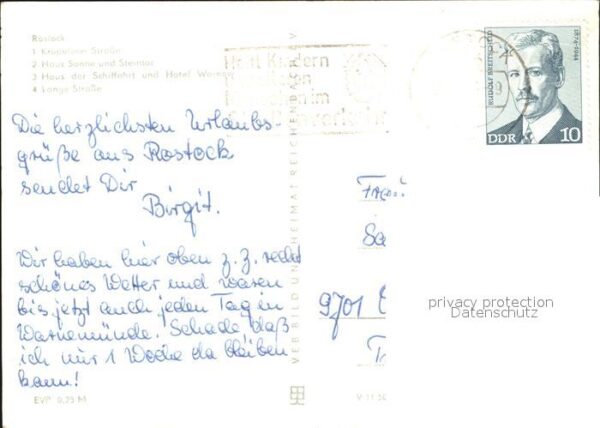 Rostock
1 Kröpeliner Straße
2 Haus Sonne und Steintor
3 Haus der Schiffahrt und Hotel Warnow
4 Lange Straße
Die herzlichsten Urlaubs-
grüße aus Rostock
sendet Dir
Birgit.
Wir haben hier oben z. Z. recht
schönes Wetter und waren
bis jetzt auch jeden Tag in
Warnemünde. Schade daß
ich nur 1 Woche da bleiben
kann!
EVP 0,25 M
VEB BILD UND HEIMAT REICHENBACH I. V.
Helft Kindern
im
RUDOLF BREITSCHEID
1874-1944
DDR 10
Fam
9701
privacy protection
Datenschutz